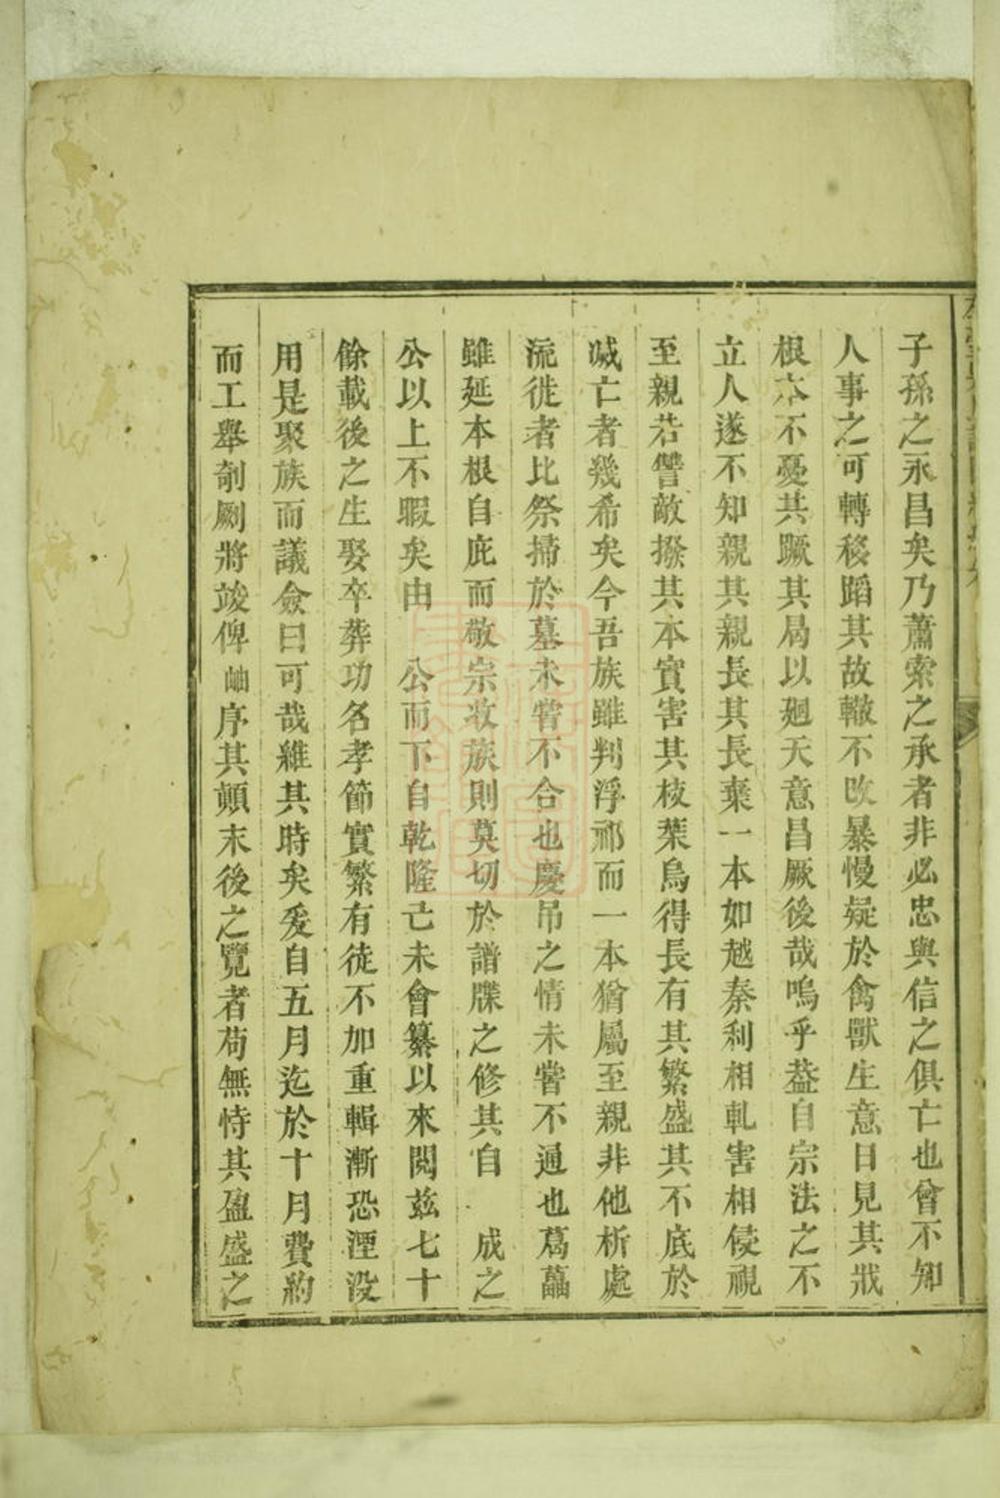 子孫之永昌矣乃蕭索之承者非必忠與信之俱亡也會不知
人事之可轉移蹈其故轍不改暴慢疑於禽獸生意日見其戕
根本不憂其蹶其局以廻天意昌厥後哉嗚乎葢自宗法之不
立人遂不知親其親長其長棄一本如越秦利相軋害相侵視
至親若讐敵撥其本實害其枝葉烏得長有其繁盛其不底於
滅亡者幾希矣今吾族雖判浮祁而一本猶屬至親非他析處
流徙者比祭掃於墓未嘗不合也慶吊之情未嘗不通也葛藟
雖延本根自庇而敬宗收族則莫切於譜牒之修其自 成之
公以上不暇矣由 公而下自乾隆己未會纂以來閱茲七十
餘載後之生娶卒葬功名孝節實繁有徒不加重輯漸恐湮没
用是聚族而議僉曰可哉維其時矣爰自五月迄於十月費約
而工舉剞劂將竣俾岫序其顛末後之覽者苟無恃其盈盛之